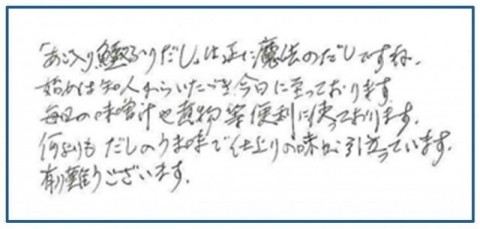 「あご入り鰹ふりだし」は正に魔法のだしですね。
始めは知人からいただき今日に至っております
毎日の味噌汁や煮物等便利に使っております。
何よりもだしのうま味で仕上りの味が引立っています。
有難うございます。